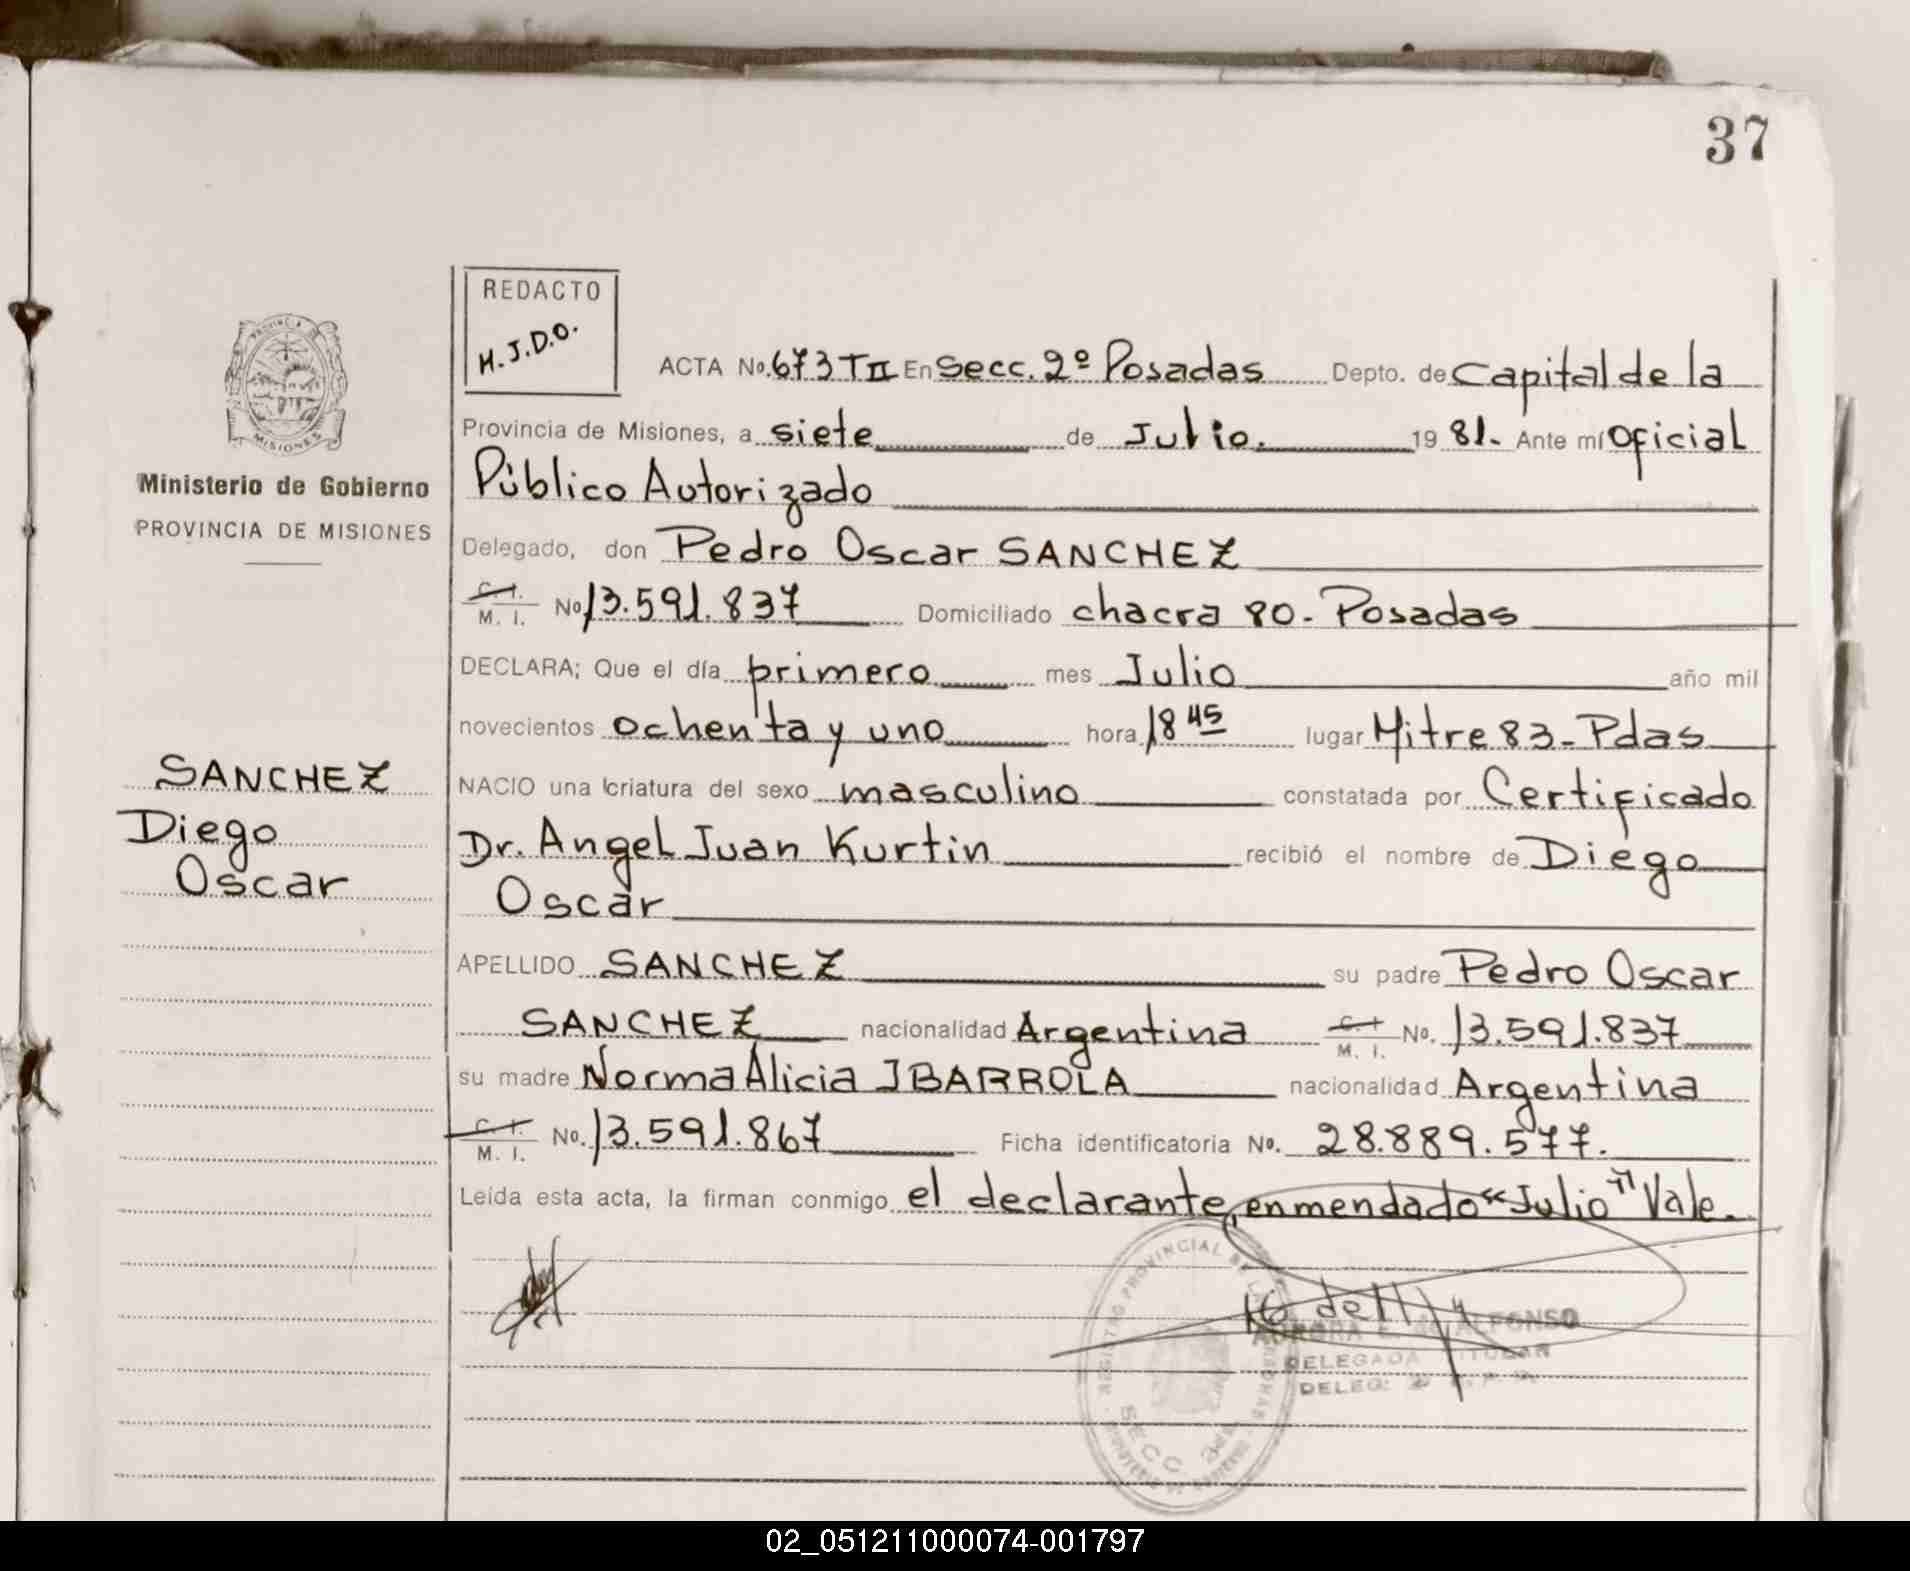 37
REDACTO
H.J.D.O.
ACTA No. 673 T II En Secc. 2º Posadas Depto. de Capital de la
Provincia de Misiones, a siete de Julio. 19 81.- Ante mí Oficial
Público Autorizado
Delegado, don Pedro Oscar SANCHEZ
C. I.
M. I. No 13.591.837 Domiciliado chacra 80.- Posadas
DECLARA; Que el día primero mes Julio año mil
novecientos ochenta y uno hora 18 45 lugar Mitre 83 - Pdas
NACIO una criatura del sexo masculino constatada por Certificado
Dr. Angel Juan Kurtin recibió el nombre de Diego
Oscar
APELLIDO SANCHEZ su padre Pedro Oscar
SANCHEZ nacionalidad Argentina C. I. M. I. No. 13.591.837
su madre Norma Alicia IBARROLA nacionalidad Argentina
C. I.
M. I. No. 13.591.867 Ficha identificatoria No. 28.889.577.
Leída esta acta, la firman conmigo el declarante, enmendado "Julio" Vale.
PROVINCIA
MISIONES
Ministerio de Gobierno
PROVINCIA DE MISIONES
SANCHEZ
Diego
Oscar
REGISTRO PROVINCIAL DE LAS PERSONAS
SECC.
ALFONSO
DELEGADA TITULAR
DELEG:
02_051211000074-001797